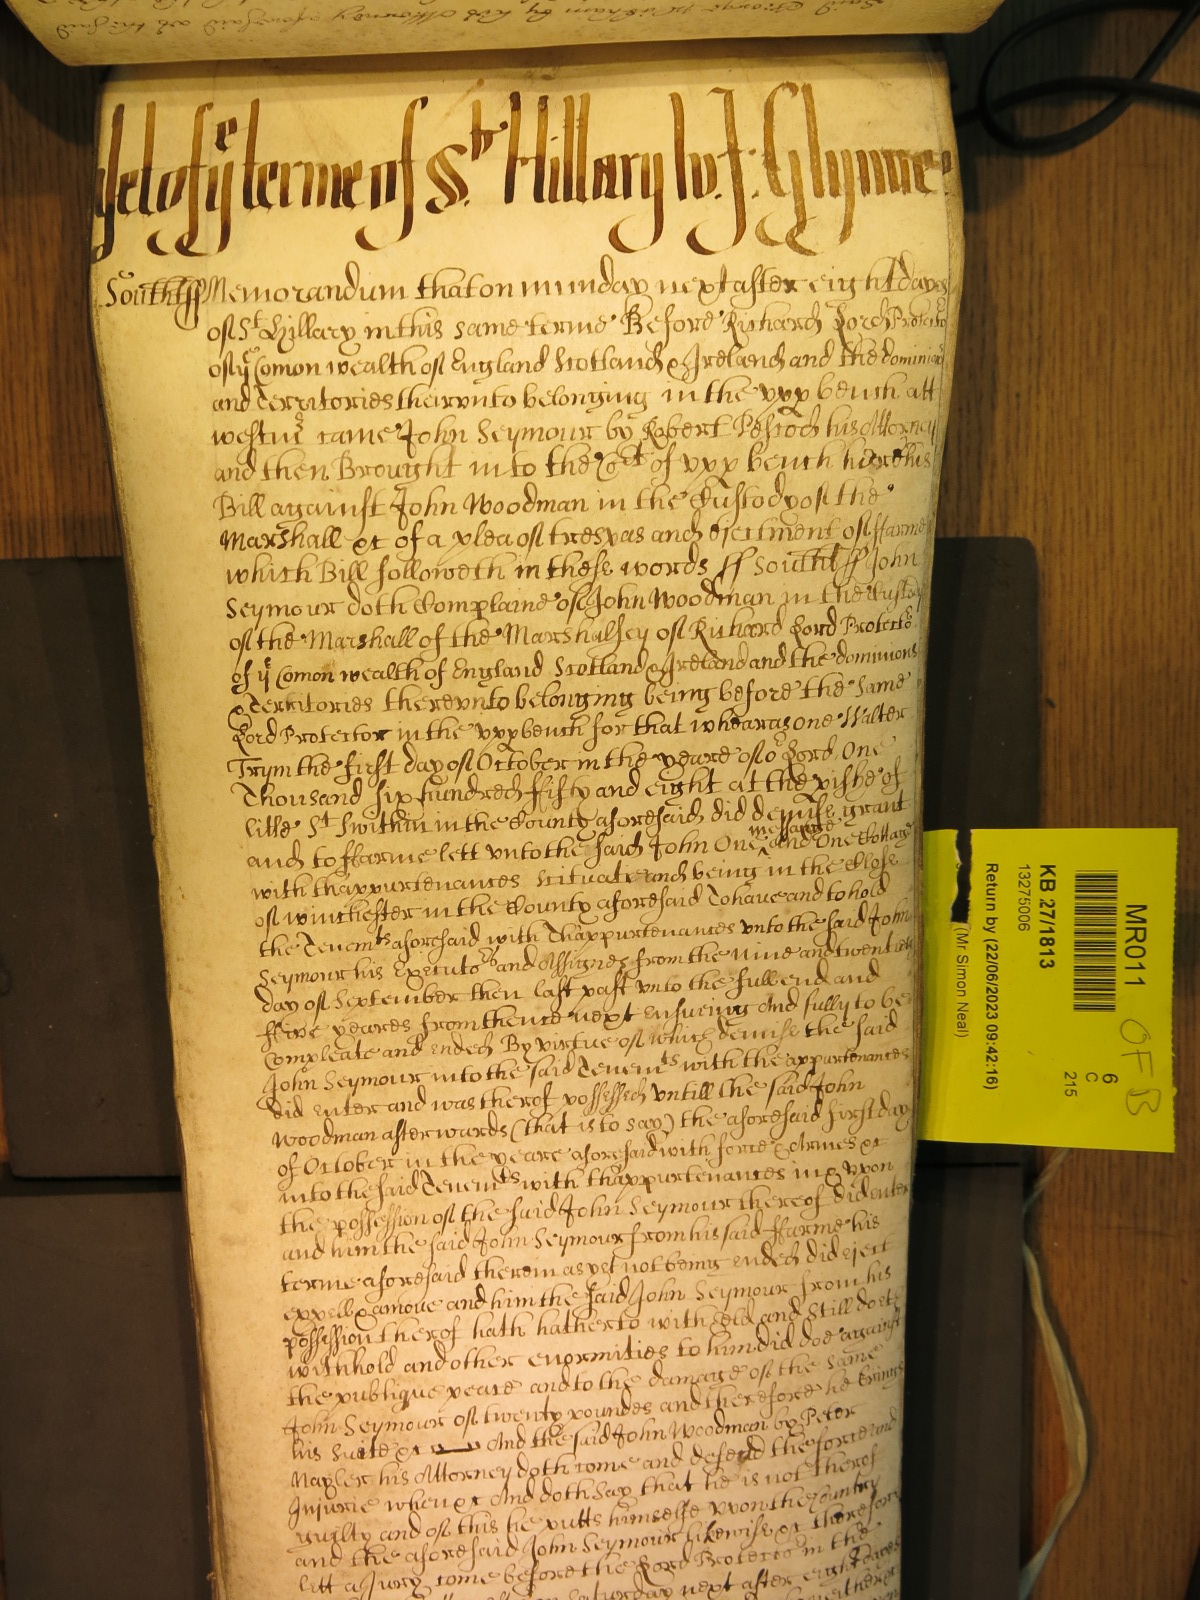 Said George by his Attorney aforesaid at the said
yet of yᵉ terme of Sᵗ Hillary by J: Glynne
Southt ss Memorandum that on munday next after eight dayes
of Sᵗ Hillary in this same terme Before Richard Lord Protector
of yᵉ Comon wealth of England Scotland & Ireland and the dominions
and Territories theirunto belonging in the upp bench att
westmʳ came John Seymour by Robert his Attorney
and then Brought in to the Coʳᵗ of upp bench heere his
Bill against John Woodman in the Custody of the
Marshall &c of a plea of trespas and ejectment of ffarme
which Bill followeth in these words ss Southt ss John
Seymour doth Complaine of John Woodman in the Custody
of the Marshall of the Marshalsey of Richard Lord Protectoʳ
of yᵉ Comon wealth of England Scotland & Ireland and the dominions
& Territories thereunto belonging being before the same
Lord Protector in the upp bench for that whearas one Walter
Trym the first day of October in the yeare of oʳ Lord One
Thousand six hundred fifty and eight at the pishe of
litle Sᵗ Swithin in the County aforesaid did demise grant
and to ffarme lett unto the said John One messuage and One Cottage
with thappurtenances scituate and being in the Close
of winchester in the County aforesaid To have and to hold
the Tenemᵗˢ aforesaid with Thappurtenances unto the said John
Seymour his Executoʳˢ and Assignes from the nine and twentieth
day of September then last past unto the full end and
ffive yeares from thence next ensuring And fully to be
Compleate and ended By virtue of which demise the said
John Seymour into the said Tenemᵗˢ with the appurtenances
did enter and was therof possessed untill the said John
Woodman afterwards (that is to say) the aforesaid first day
of October in the yeare aforesaid with force & Armes &c
into the said Tenemᵗˢ with thappurtenances in & upon
the possession of the said John Seymour thereof did enter
and him the said John Seymour from his said ffarme his
terme aforesaid therein as yet not being ended did eject
expell & amove and him the said John Seymour from his
possession therof hath hatherto witheld and still doth
withhold and other enormities to him did doe against
the publique peace and to the damage of the same
John Seymour of twenty poundes and therefore he brings
his Suite &c And the said John Woodman by Peter
Nayler his Attorney doth come and defend the force and
Injurie when &c And doth Say that he is not therof
guilty and of this he putts himselfe upon the Country
and the aforesaid John Seymour likewise &c therefore
lett a Jury come before the Lord Protectoʳ in the
Saturday next after eight dayes
MR011
6
C
215
KB 27/1813
13275006
Return by (22/06/2023 09:42:16)
(Mr Simon Neal)
OFB